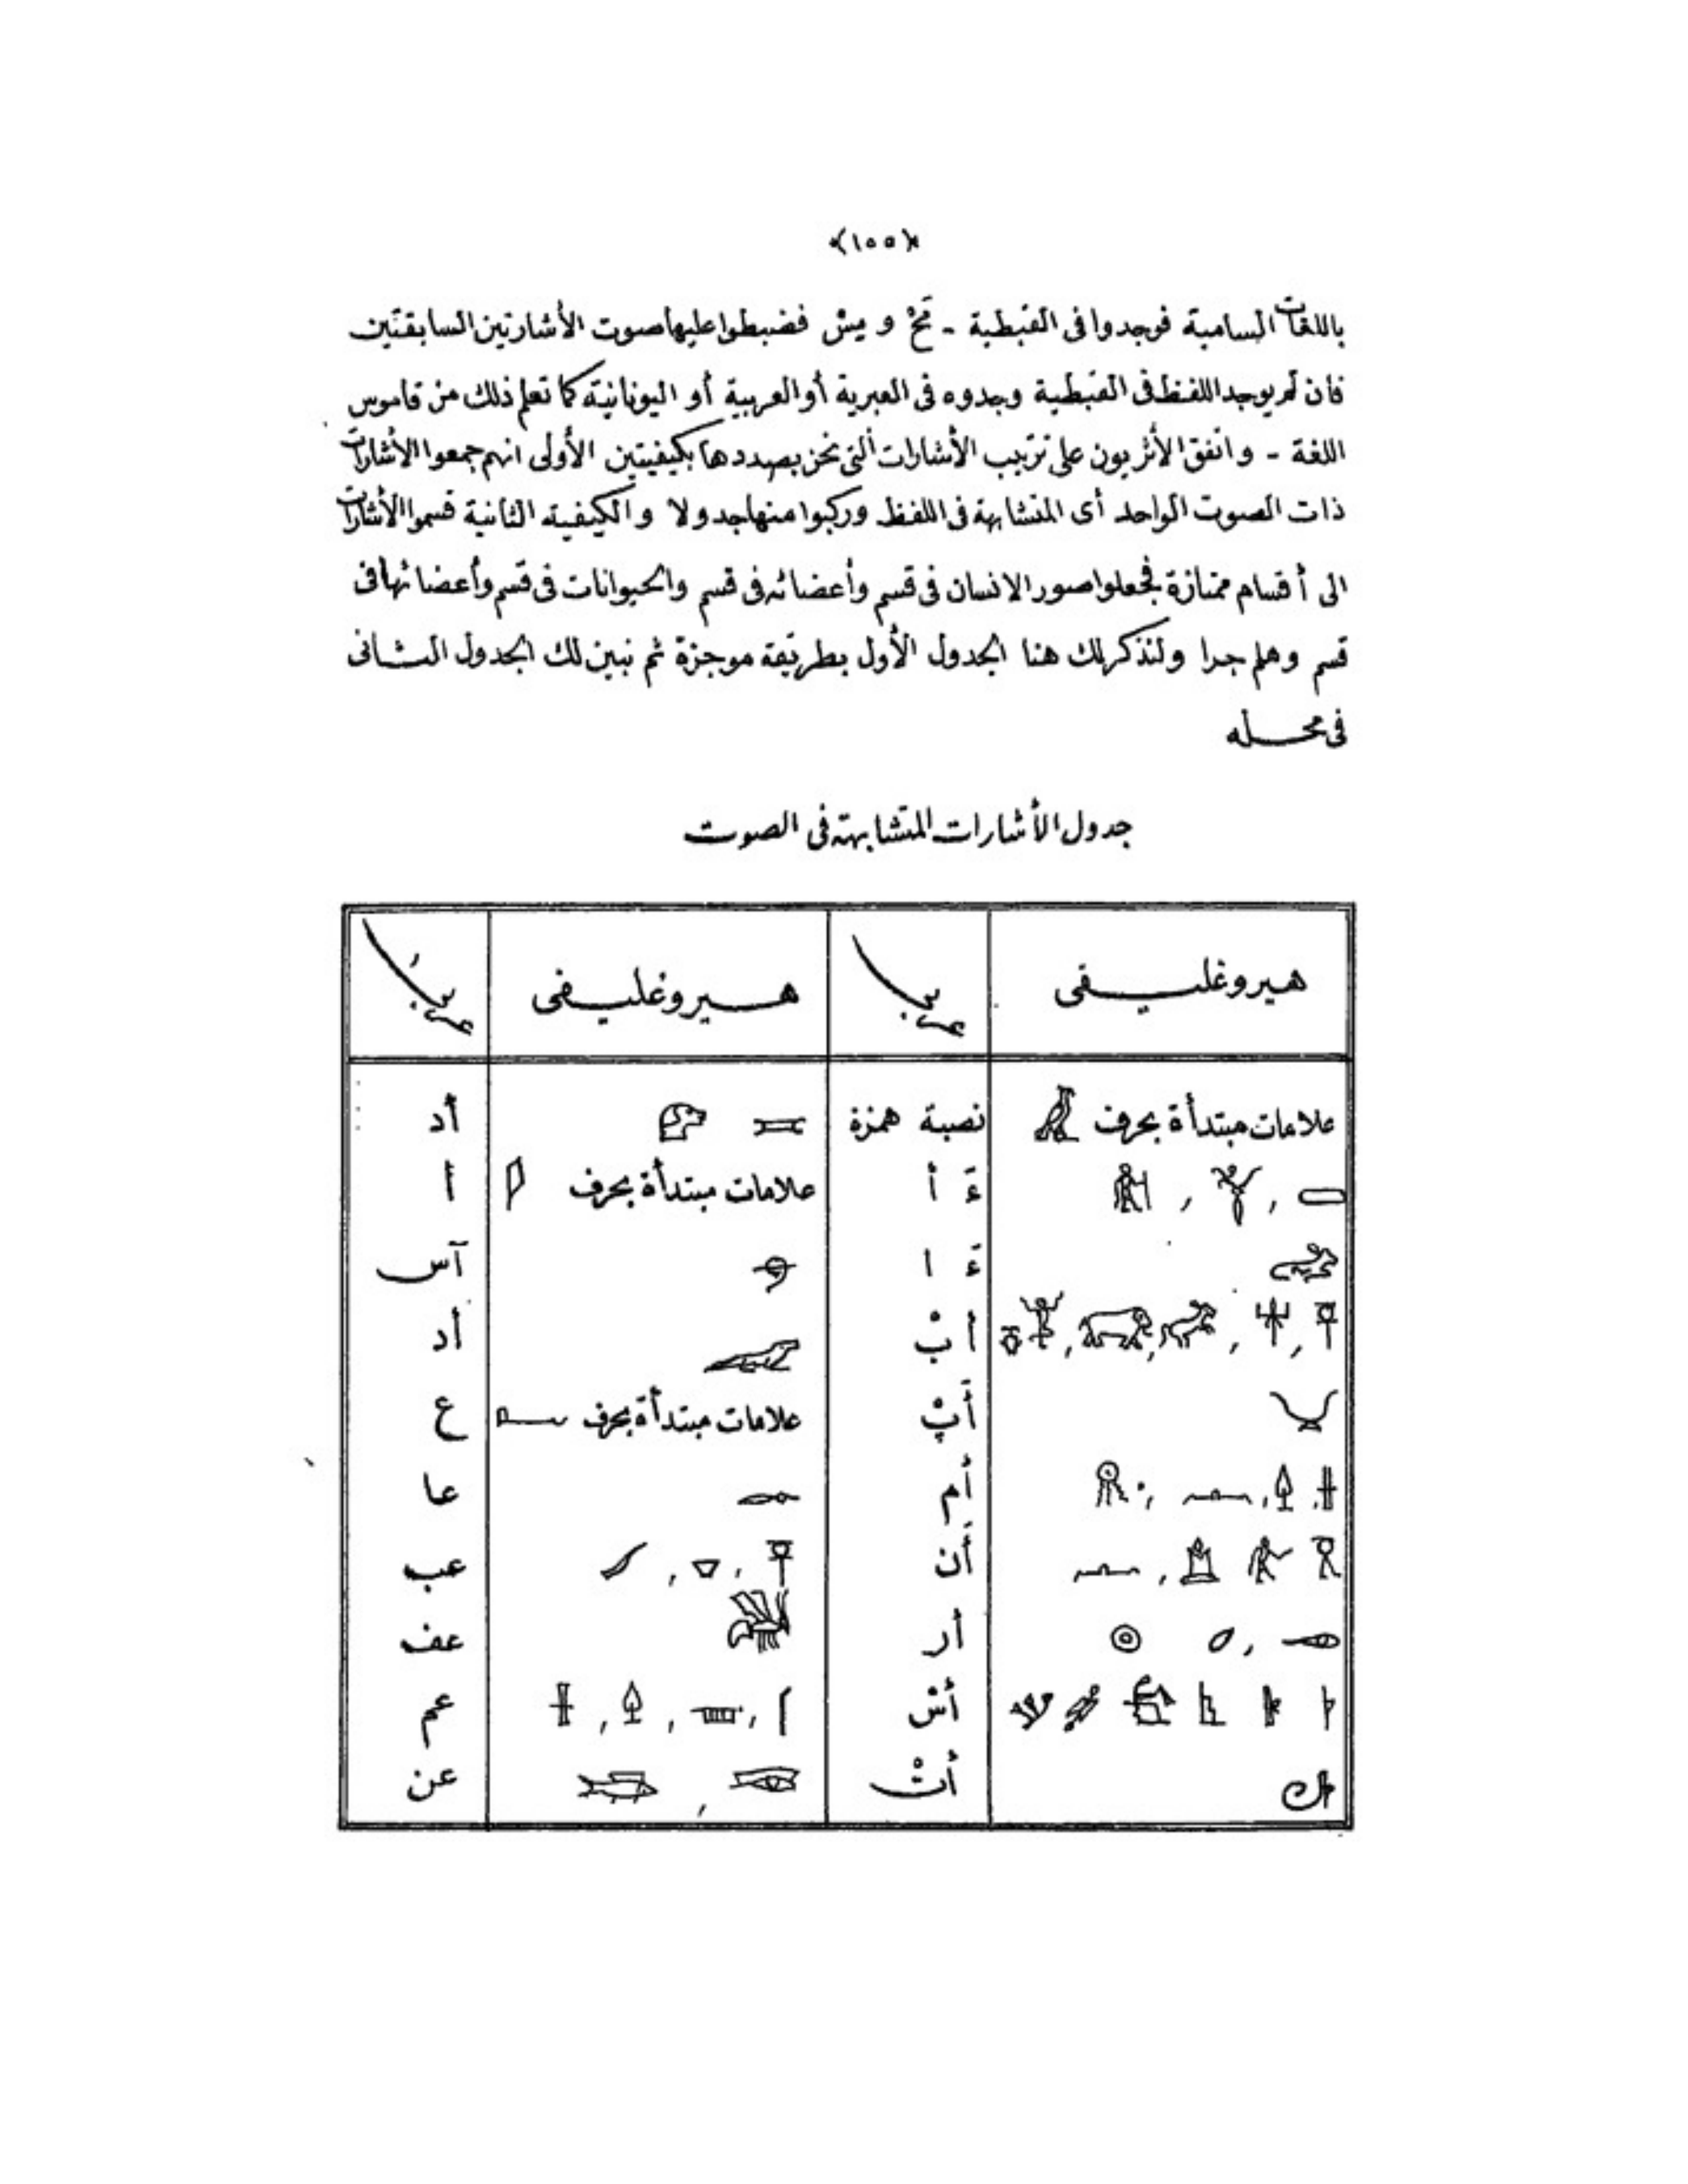 ﴿١٥٥﴾
باللغات السامية فوجدوا فى القبطية - مَحْ و مِسْ فضبطوا عليها صوت الأشارتين السابقتين
فان لم يوجد اللفظ فى القبطية وجدوه فى العبرية أو العربية أو اليونانية كما تعلم ذلك من قاموس
اللغة - واتفق الأثريون على ترتيب الأشارات التى نحن بصددها بكيفيتين الأولى انهم جمعوا الأشارات
ذات الصوت الواحد أى المتشابهة فى اللفظ وركبوا منها جدولا والكيفية الثانية قسموا الأشارات
الى أقسام ممتازة فجعلوا صور الانسان فى قسم وأعضائه فى قسم والحيوانات فى قسم وأعضائها فى
قسم وهلم جرا ولنذكر لك هنا الجدول الأول بطريقة موجزة ثم نبين لك الجدول الثانى
فى محله
جدول الأشارات المتشابهة فى الصوت
هيروغليفى عربى هيروغليفى عربى
علامات مبتدأة بحرف نصبة همزة أد
ءَ أ علامات مبتدأة بحرف أ
ءَ ا آس
أبْ أد
أَپْ علامات مبتدأة بحرف ع
أم عا
أَن عب
أر عف
أسْ عم
أتْ عن